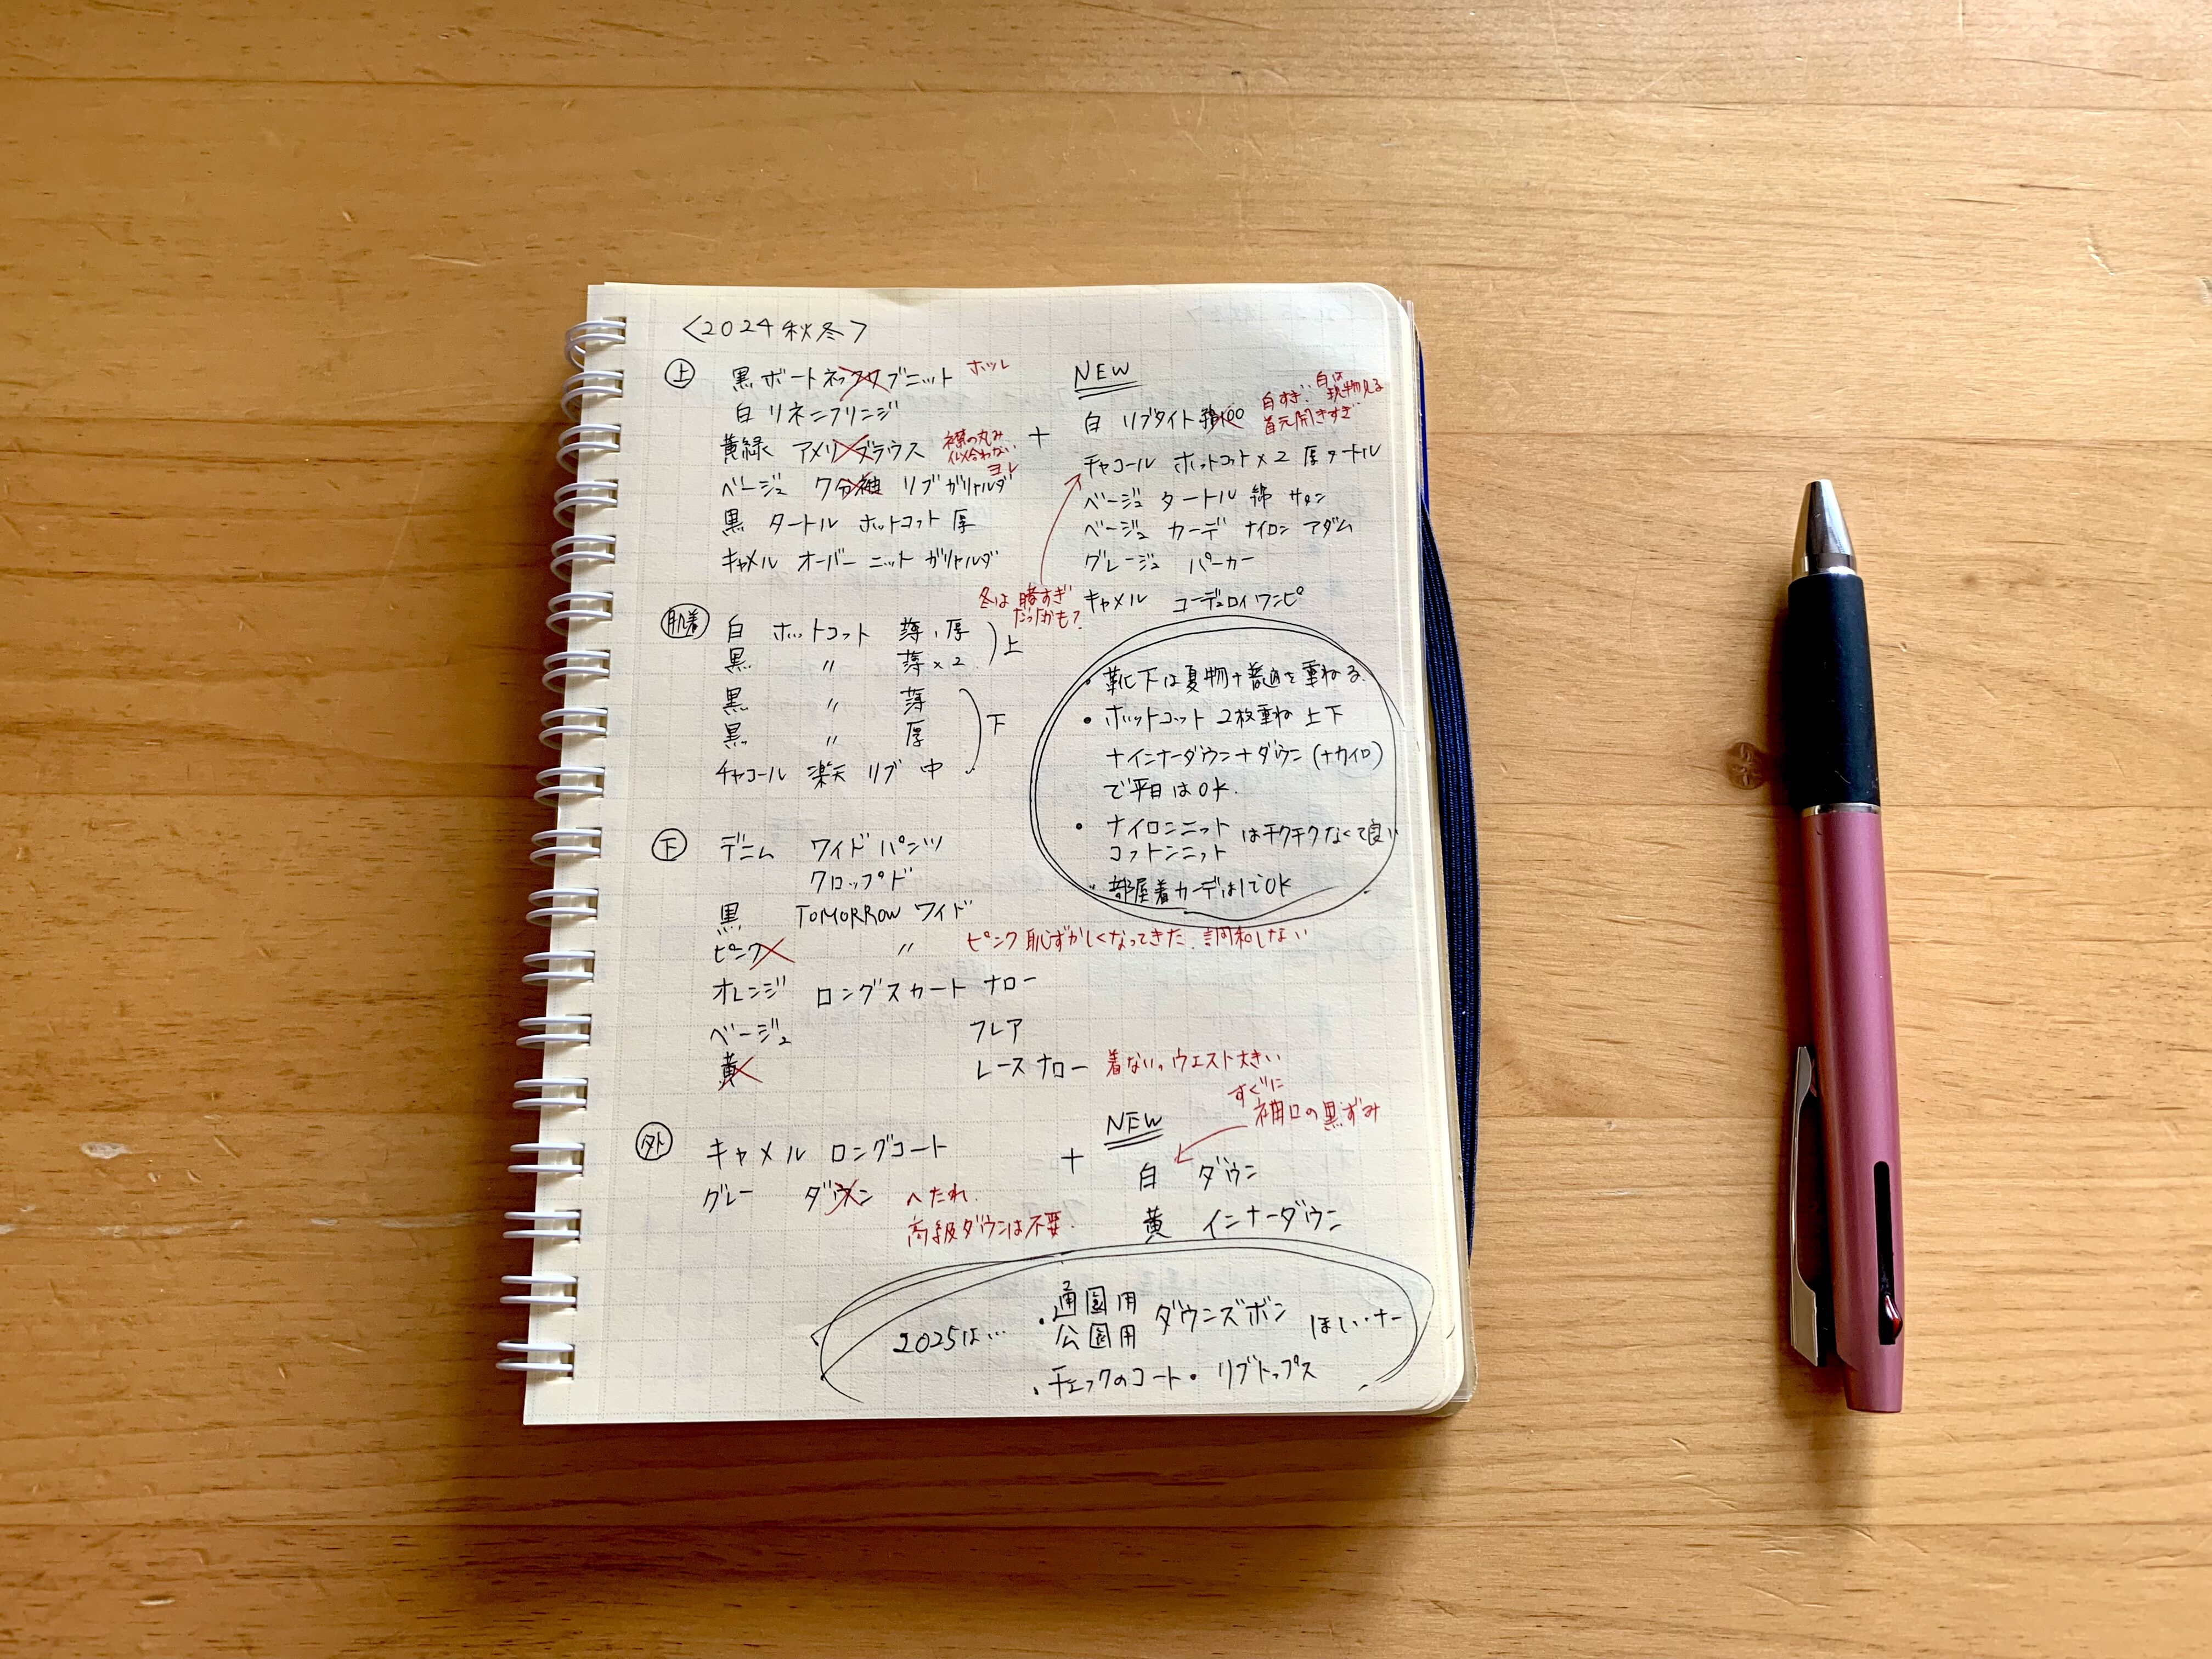 <2024秋冬>
上 黒 ボートネックリブニット ホツレ
白 リネンフリンジ
黄緑 アメリブラウス 襟の丸み似合わない ヨレ
ベージュ 7分袖 リブ ガリャルダ
黒 タートル ホットコット 厚
キャメル オーバー ニット ガリャルダ
+
NEW
白 リブタイト 綿100 白すぎ:白は現物見る
首元開きすぎ
チャコール ホットコット×2 厚タートル
ベージュ タートル 綿
ベージュ カーデ ナイロン アダム
グレージュ パーカー
キャメル コーデュロイワンピ
冬は暗すぎ
だったかも?
肌着 白 ホットコット 薄、厚
黒 〃 薄×2
上
黒 〃 薄
黒 〃 厚
チャコール 楽天 リブ 中
下
・靴下は夏物+普通を重ねる
・ホットコット 2枚重ね 上下
+インナーダウン+ダウン(+カイロ)
で平日はOK.
・ナイロンニット
コットンニット はチクチクなくて良い
・部屋着カーデは1でOK
下 デニム ワイドパンツ
クロップド
黒 TOMORROW ワイド
ピンク 〃 ピンク恥ずかしくなってきた.調和しない
オレンジ ロングスカート ナロー
ベージュ フレア
黄 レースナロー 着ない。ウエスト大きい
外 キャメル ロングコート
グレー ダウン へたれ.
高級ダウンは不要.
+
NEW
すぐに
袖口の黒ずみ
白 ダウン
黄 インナーダウン
2025は…
・通園用
公園用 ダウンズボン ほしいナー
・チェックのコート・リブトップス